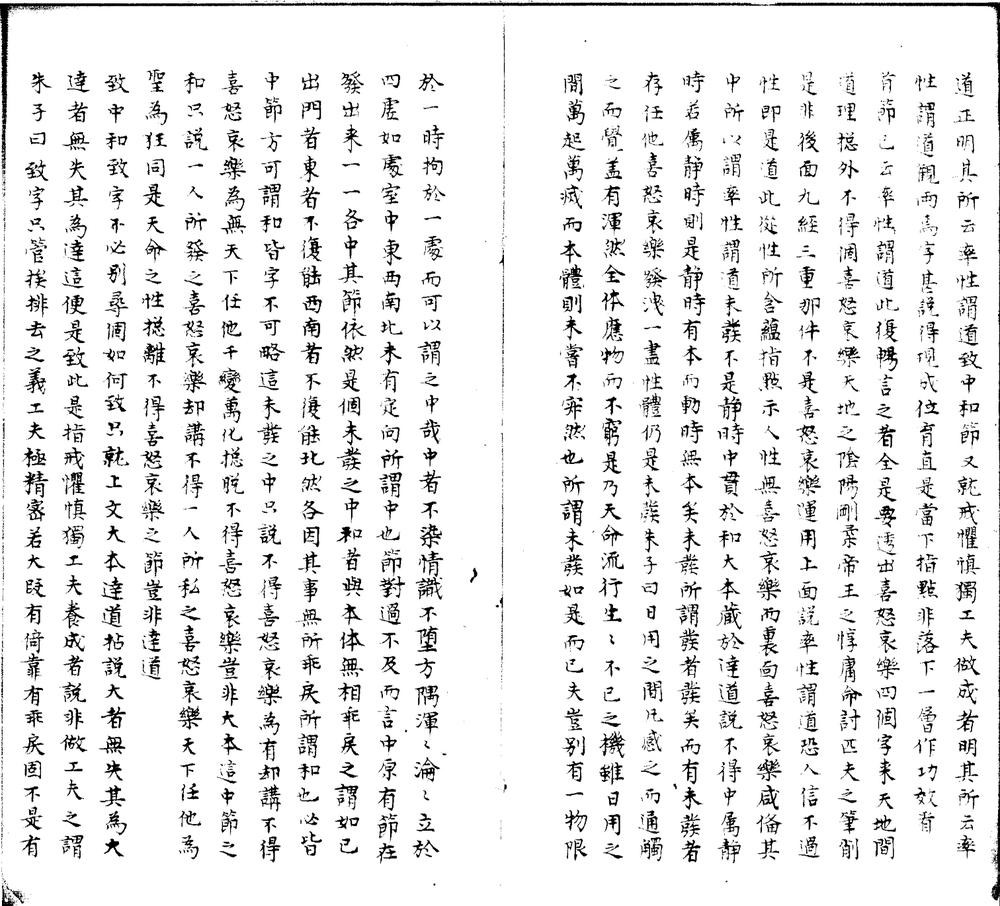 道正明其所云率性謂道致中和節又就戒懼慎獨工夫做成者明其所云率
性謂道觀兩為字甚說得現成位育直是當下指點非落下一層作功效看
首節已云率性謂道此復暢言之者全是要透出喜怒哀樂四個字来天地間
道理捴外不得個喜怒哀樂天地之陰陽剛柔帝王之惇庸命討匹夫之筆削
是非後面九經三重那件不是喜怒哀樂運用上面說率性謂道恐人信不過
性即是道此從性所含蘊指點示人性無喜怒哀樂而裏面喜怒哀樂咸俻其
中所以謂率性謂道未發不是静時中貫於和大本藏於達道說不得中属静
時若属静時則是静時有本而動時無本矣未發所謂發者發矣而有未發者
存任他喜怒哀樂發洩一盡性體仍是未發朱子曰日用之間凡感之而通觸
之而覺盖有渾然全体應物而不窮是乃天命流行生〻不已之機雖日用之
間萬起萬滅而本體則未嘗不寂然也所謂未發如是而已夫豈别有一物限
於一時拘於一處而可以謂之中哉中者不染情識不墮方隅渾〻淪〻立於
四虚如處室中東西南北未有定向所謂中也節對過不及而言中原有節在
發出来一一各中其節依然是個未發之中和者與本体無相乖戾之謂如已
出門者東者不復能西南者不復能北然各因其事無所乖戾所謂和也必皆
中節方可謂和皆字不可略這未發之中只說不得喜怒哀樂為有却講不得
喜怒哀樂為無天下任他千變萬化捴脫不得喜怒哀樂豈非大本這中節之
和只説一人所發之喜怒哀樂却講不得一人所私之喜怒哀樂天下任他為
聖為狂同是天命之性捴離不得喜怒哀樂之節豈非達道
致中和致字不必别尋個如何致只就上文大本達道拈説大者無失其為大
達者無失其為達這便是致此是指戒懼慎獨工夫養成者説非做工夫之謂
朱子曰致字只管挨排去之義工夫極精密若大既有倚靠有乖戾固不是有